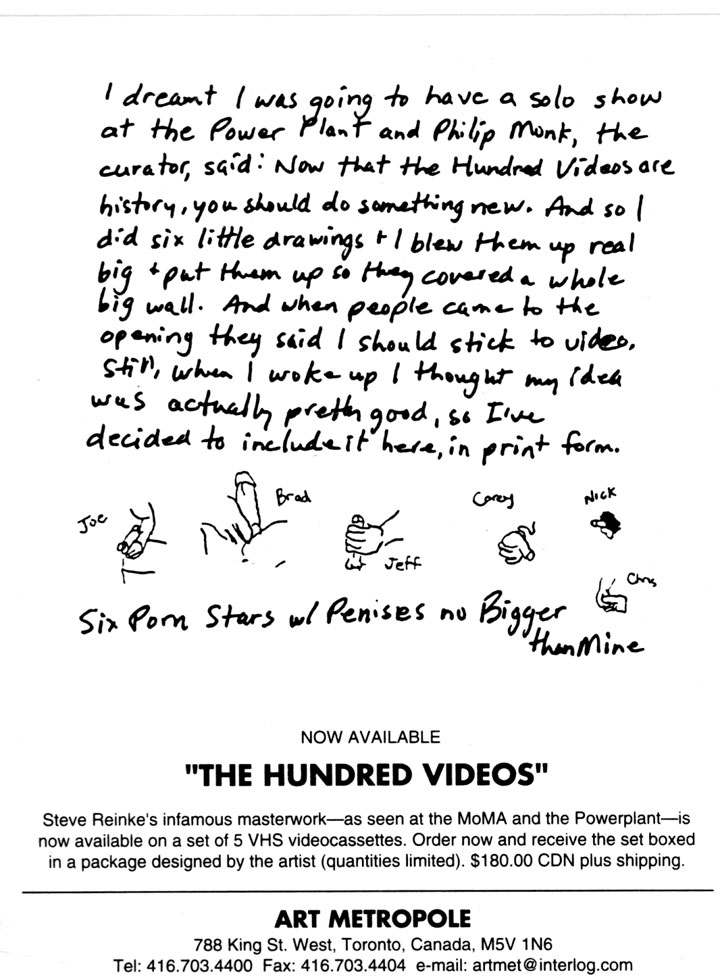 I dreamt I was going to have a solo show
at the Power Plant and Philip Monk, the
curator, said: Now that the Hundred Videos are
history, you should do something new. And so I
did six little drawings + I blew them up real
big + put them up so they covered a whole
big wall. And when people came to the
opening they said I should stick to video.
Still, when I woke up I thought my idea
was actually pretty good, so I've
decided to include it here, in print form.
Joe
Brad
Jeff
Corey
Nick
Chris
Six Porn Stars w/ Penises no Bigger
than Mine
NOW AVAILABLE
"THE HUNDRED VIDEOS"
Steve Reinke's infamous masterwork—as seen at the MoMA and the Powerplant—is
now available on a set of 5 VHS videocassettes. Order now and receive the set boxed
in a package designed by the artist (quantities limited). $180.00 CDN plus shipping.
ART METROPOLE
788 King St. West, Toronto, Canada, M5V 1N6
Tel: 416.703.4400 Fax: 416.703.4404 e-mail: artmet@interlog.com